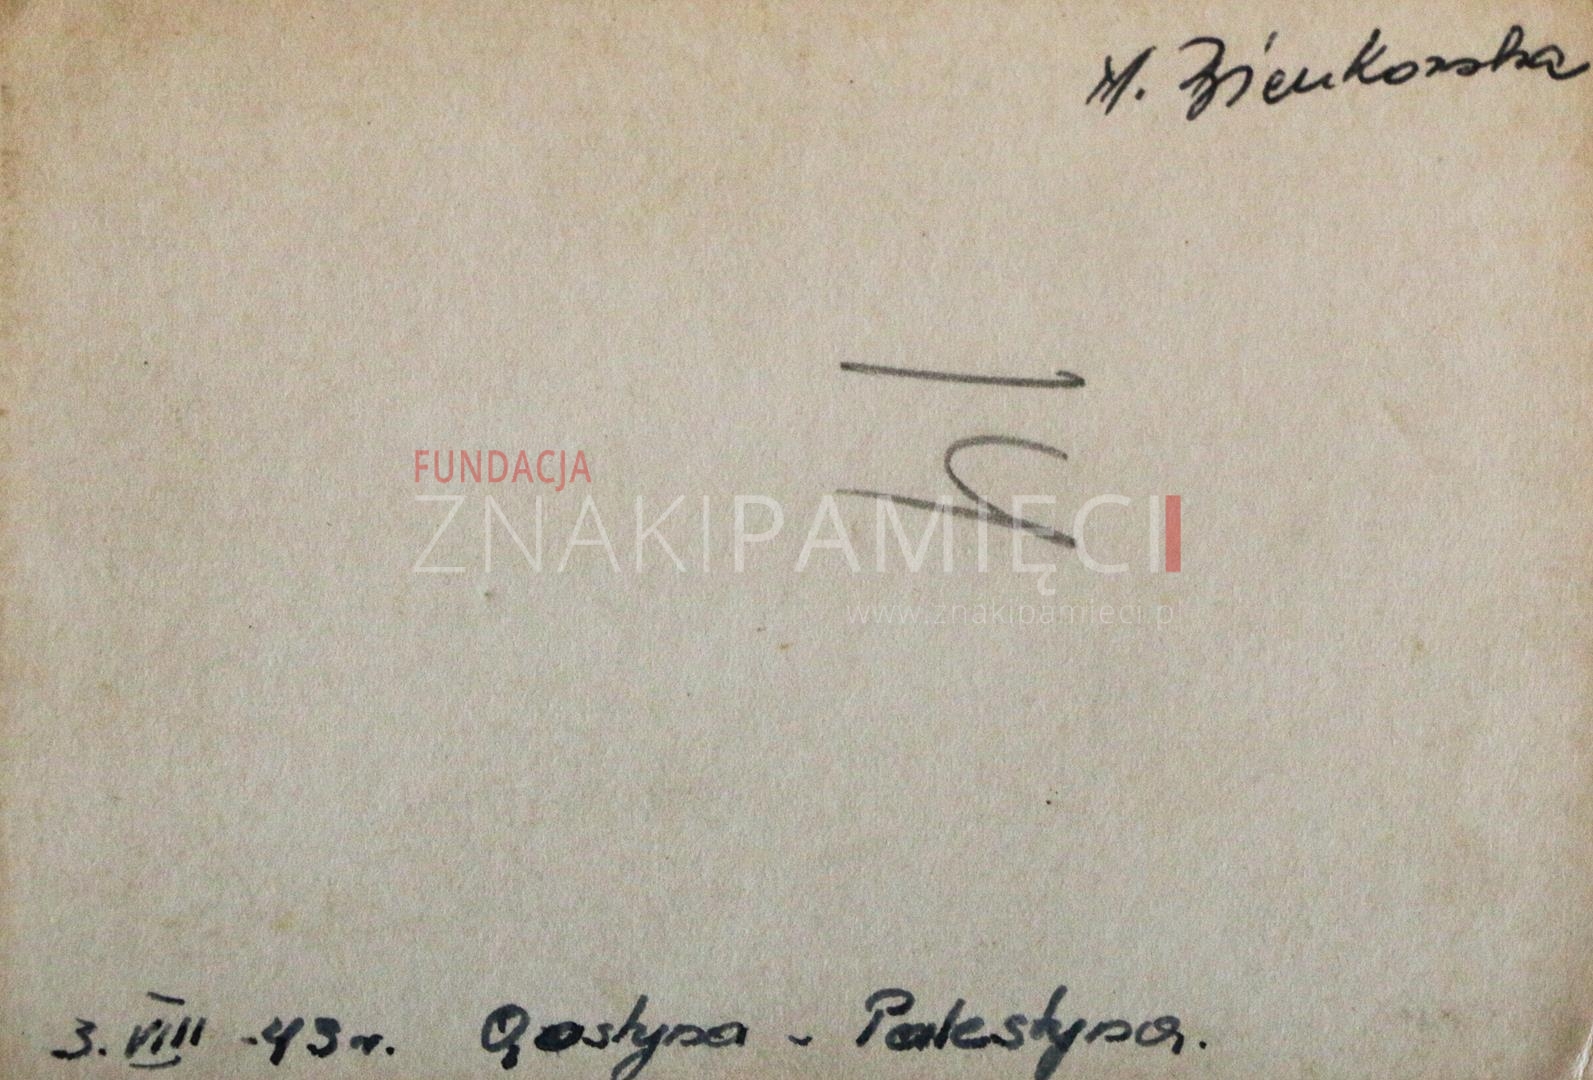 M. Bienkowska
FUNDACJA
ZNAKIPAMIĘCI
www.znakipamieci.pl
3. VIII -43 r. Qastyna - Palestyna.